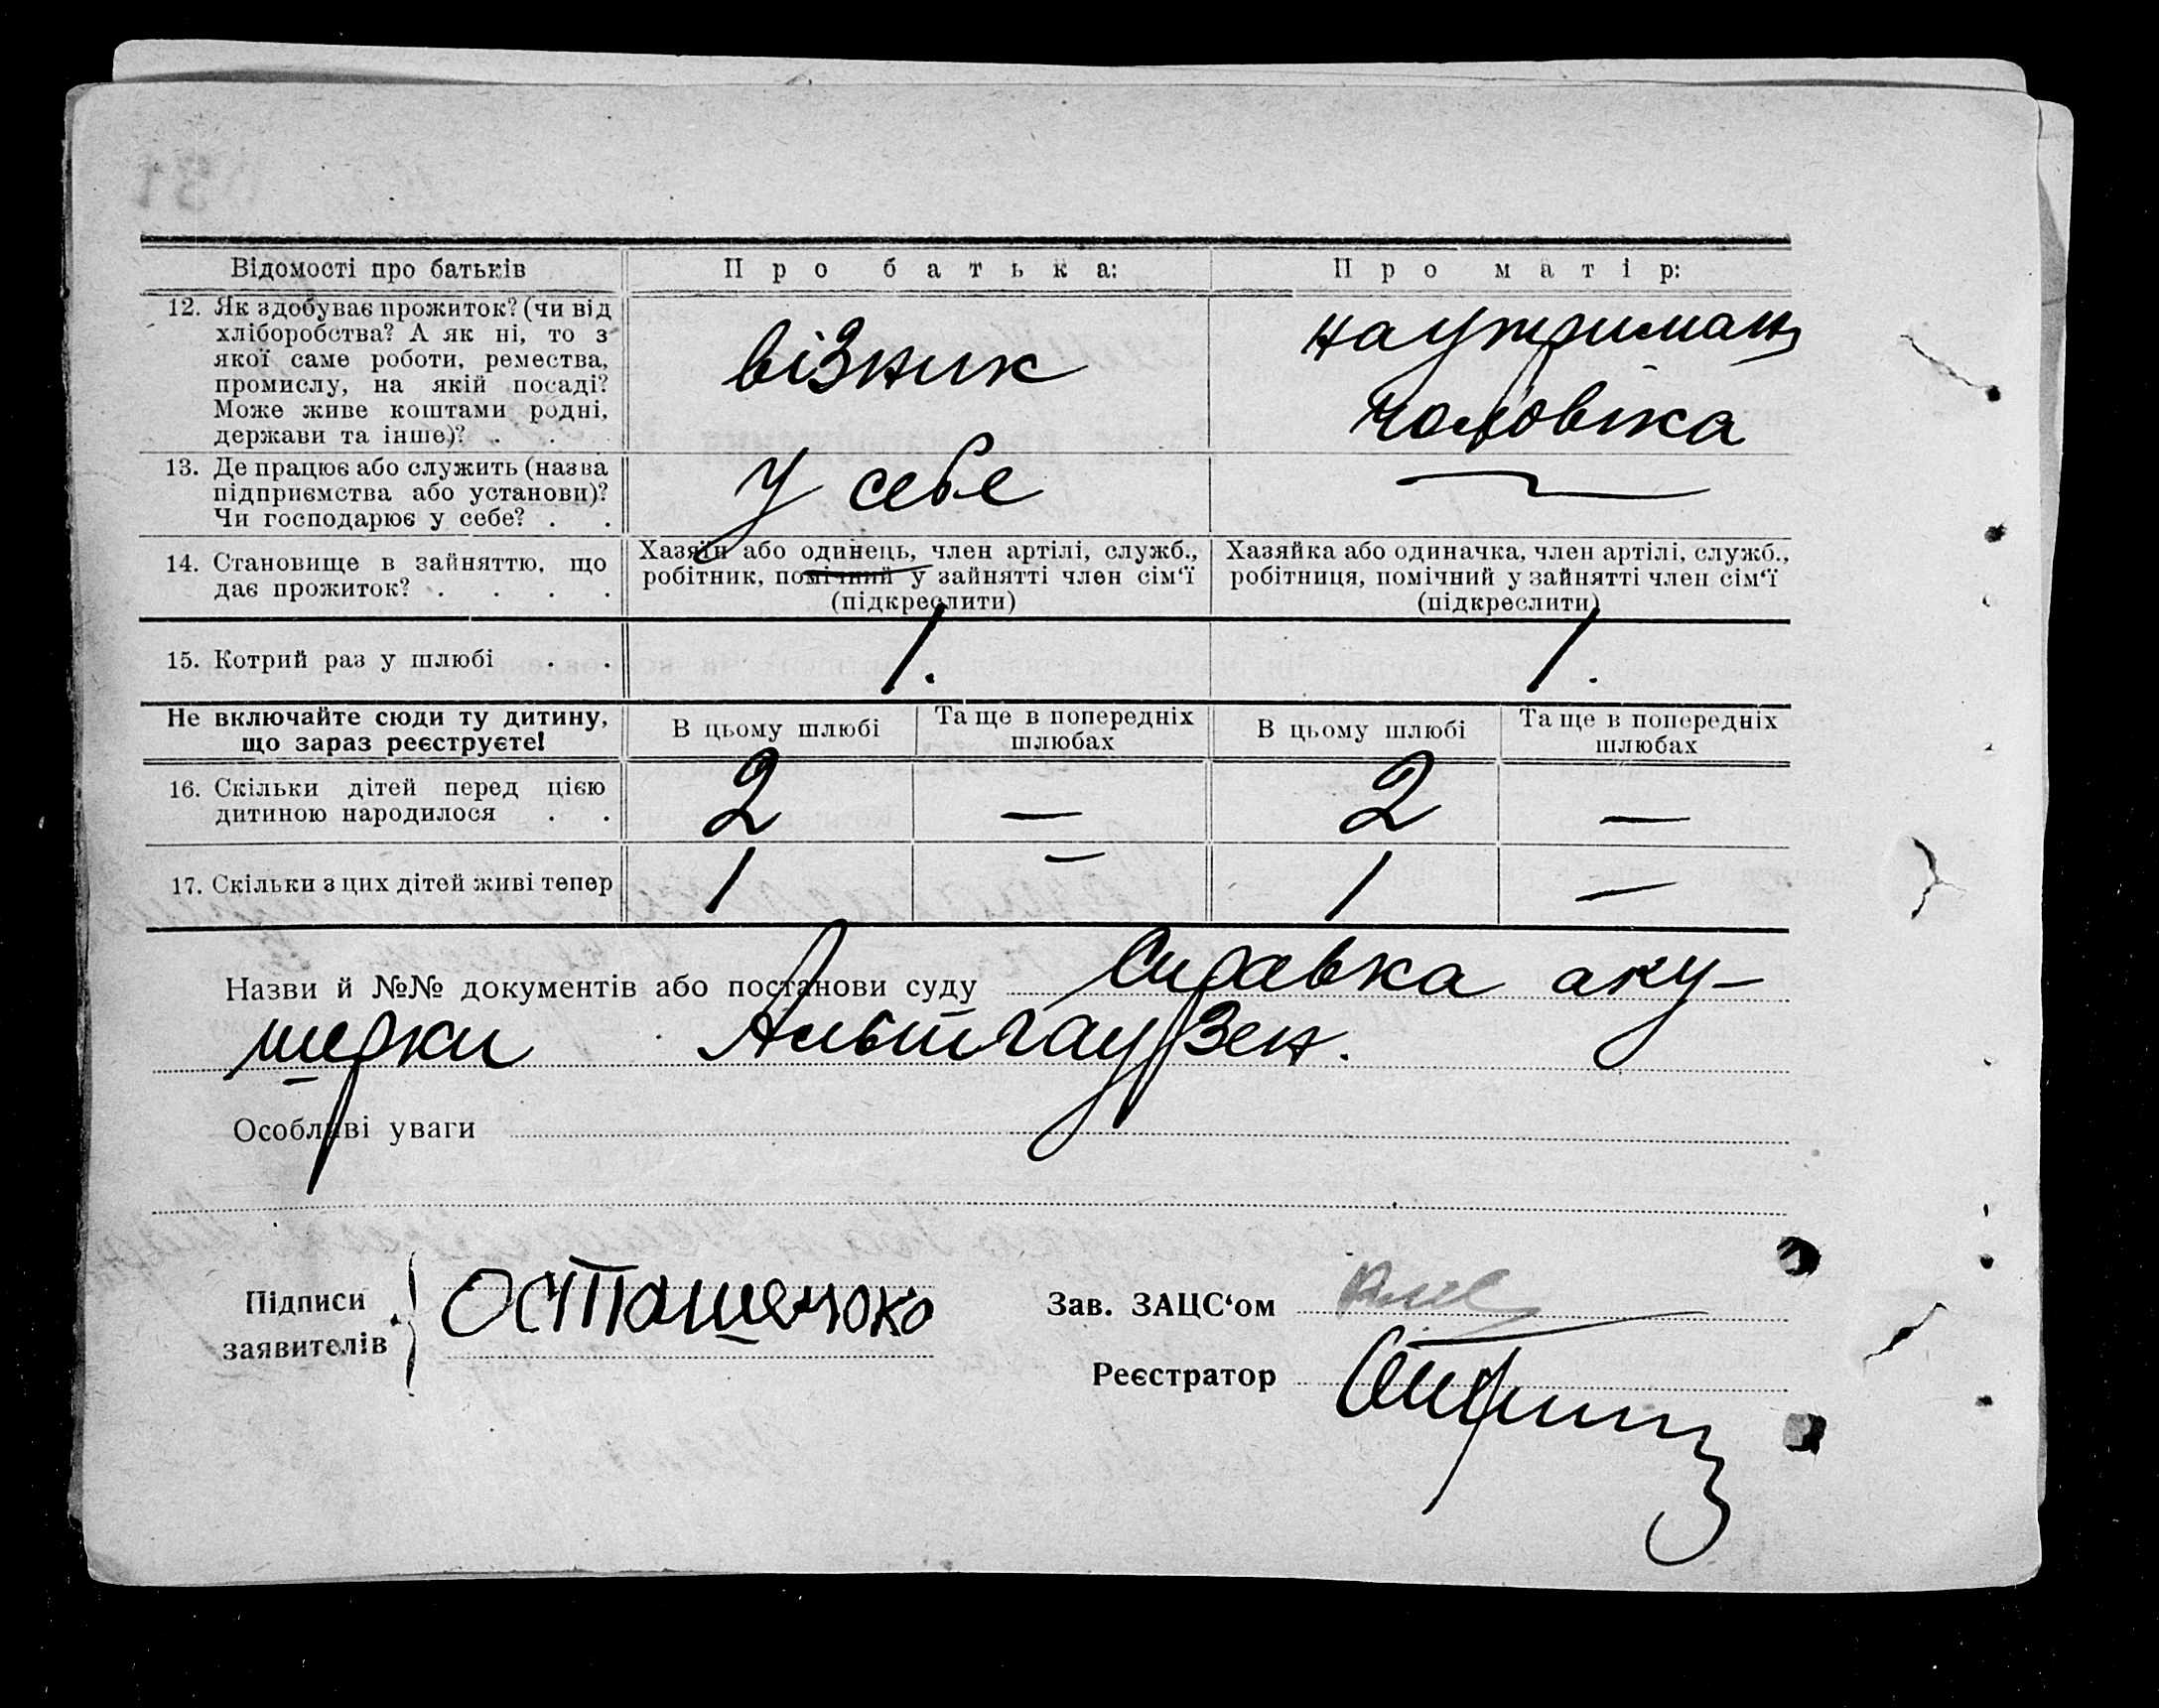 Відомості про батьків
Про батька:
Про матір:
12. Як здобуває прожиток? (чи від
хліборобства? А як ні, то з
якої саме роботи, ремества,
промислу, на якій посаді?
Може живе коштами родні,
держави та інше)? . .
візник
на утриман
чоловіка
13. Де працює або служить (назва
підприємства або установи)?
Чи господарює у себе? . .
У себе
—
14. Становище в зайняттю, що
дає прожиток? . . . .
Хазяїн або одинець, член артілі, служб.,
робітник, помічний у зайнятті член сім‘ї
(підкреслити)
Хазяйка або одиначка, член артілі, служб.,
робітниця, помічний у зайнятті член сім‘ї
(підкреслити)
15. Котрий раз у шлюбі . .
1.
1.
Не включайте сюди ту дитину,
що зараз реєструєте!
В цьому шлюбі
Та ще в попередніх
шлюбах
В цьому шлюбі
Та ще в попередніх
шлюбах
16. Скільки дітей перед цією
дитиною народилося . .
2
—
2
—
17. Скільки з цих дітей живі тепер
1
—
1
—
Назви й №№ документів або постанови суду Справка аку-
шерки Альтгаузен.
Особливі уваги
Підписи
заявителів
Осташенюко
Зав. ЗАЦС‘ом
Реєстратор